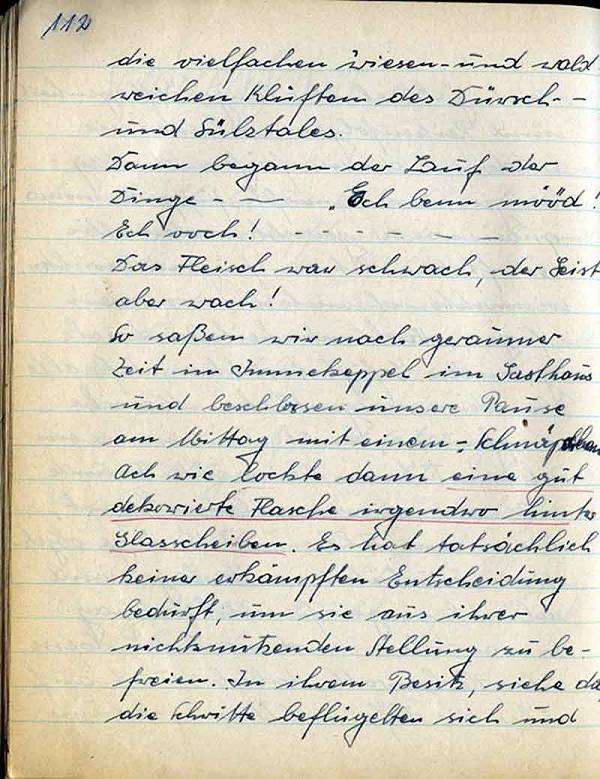 112
die vielfachen wiesen- und wald
weichen Klüften des Dürsch-
und Sülztales.
Dann begann der Lauf der
Dinge - — „Ech benn mööd!
Ech ooch! - - - — —
Das Fleisch war schwach, der Geist
aber wach!
So saßen wir nach geraumer
Zeit in Immekeppel im Gasthaus
und beschlossen unsere Pause
am Mittag mit einem - Schnäpschen
Ach wie lockte dann eine gut
dekorierte Flasche irgendwo hinter
Glasscheiben. Es hat tatsächlich
keiner erkämpften Entscheidung
bedurft, um sie aus ihrer
nichtsnutzenden Stellung zu be-
freien. In ihrem Besitz, siehe da,
die Schritte beflügelten sich und